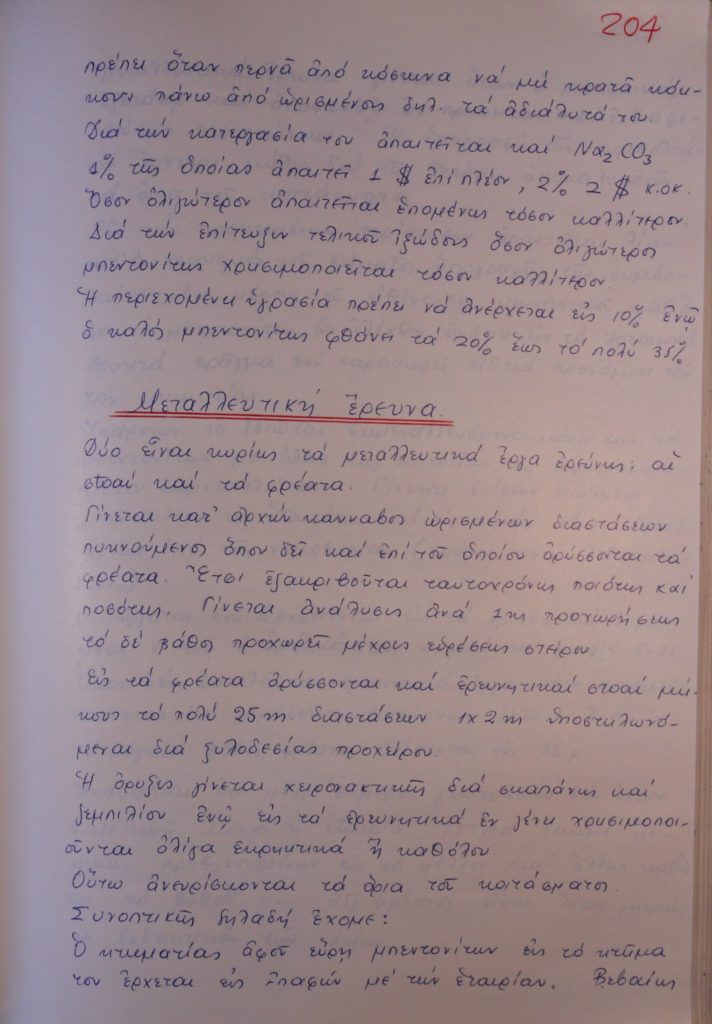 204
πρέπει ὅταν περνᾶ ἀπό κόσκινα νά μή κρατᾶ κόκ-
κους πάνω ἀπό ὡρισμένους δηλ. τά ἀδιάλυτά του
Διά τήν κατεργασία του ἀπαιτεῖται καί Na2 CO3
1% τῆς ὁποίας ἀπαιτεῖ 1 $ ἐπί πλέον, 2% 2 $ κ.οκ.
Ὅσον ὀλιγώτερον ἀπαιτεῖται ἑπομένως τόσον καλλίτερον.
Διά τήν ἐπίτευξιν τελικοῦ ἰξώδους ὅσον ὀλιγώτερος
μπεντονίτης χρησιμοποιεῖται τόσον καλλίτερον.
Ἡ περιεχομένη ὑγρασία πρέπει νά ἀνέρχεται εἰς 10% ἐνῷ
ὁ καλός μπεντονίτης φθάνει τά 20% ἕως τό πολύ 35%
Μεταλλευτική ἔρευνα.
Δύο εἶναι κυρίως τά μεταλλευτικά ἔργα ἐρεύνης: αἱ
στοαί καί τά φρέατα.
Γίνεται κατ' ἀρχήν κανναβος ὡρισμένων διαστάσεων
πυκνούμενος ὅπου δεῖ καί ἐπί τοῦ ὁποίου ὀρύσσονται τά
φρέατα. Ἔτσι ἐξακριβοῦται ταυτοχρόνως ποιότης καί
ποσότης. Γίνεται ἀνάλυσις ἀνά 1m προχωρήσεως
τό δέ βάθος προχωρεῖ μέχρις εὑρέσεως στείρου
Εἰς τά φρέατα ὀρύσσονται καί ἐρευνητικαί στοαί μή-
κους τό πολύ 25m διαστάσεων 1x2m ὑποστυλωνό-
μεναι διά ξυλοδεσίας προχείρου.
Ἡ ὄρυξις γίνεται χειρονακτικῶς διά σκαπάνης καί
ζεμπιλίου ἐνῷ εἰς τά ἐρευνητικά ἐν γένει χρησιμοποι-
οῦνται ὀλίγα ἐκρηκτικά ἤ καθόλου
Οὕτω ἀνευρίσκονται τά ὅρια τοῦ κοιτάσματος.
Συνοπτικῶς δηλαδή ἔχομε:
Ὁ κτηματίας ἀφοῦ εὕρῃ μπεντονίτην εἰς τό κτῆμα
του ἔρχεται εἰς ἐπαφήν μέ τήν ἑταιρίαν. Βεβαίως